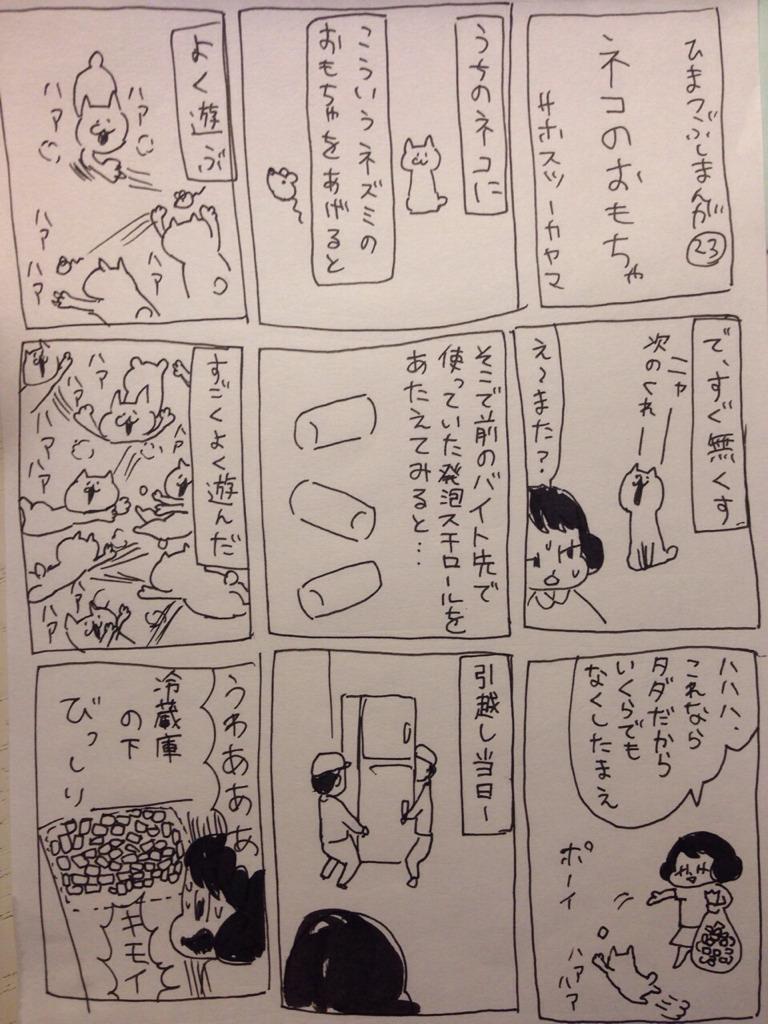 ひまつぶしまんが㉓
ネコのおもちゃ
サホスツーカヤマ
うちのネコに
こういうネズミの
おもちゃをあげると
よく遊ぶ
ハァ
ハァ
ハァ
ハァ
ハァ
で、すぐ無くす
ニャ
次のくれ
え〜また?
そこで前のバイト先で
使っていた発泡スチロールを
あたえてみると…
すごくよく遊んだ
ハァ
ハァ
ハァ
ハァ
ハァ
ハァ
ハハハ、
これなら
タダだから
いくらでも
なくしたまえ
ポーイ
ハァ
ハァ
引越し当日ー
うわあああぁ
冷蔵庫
の下
びっしり
キモイ